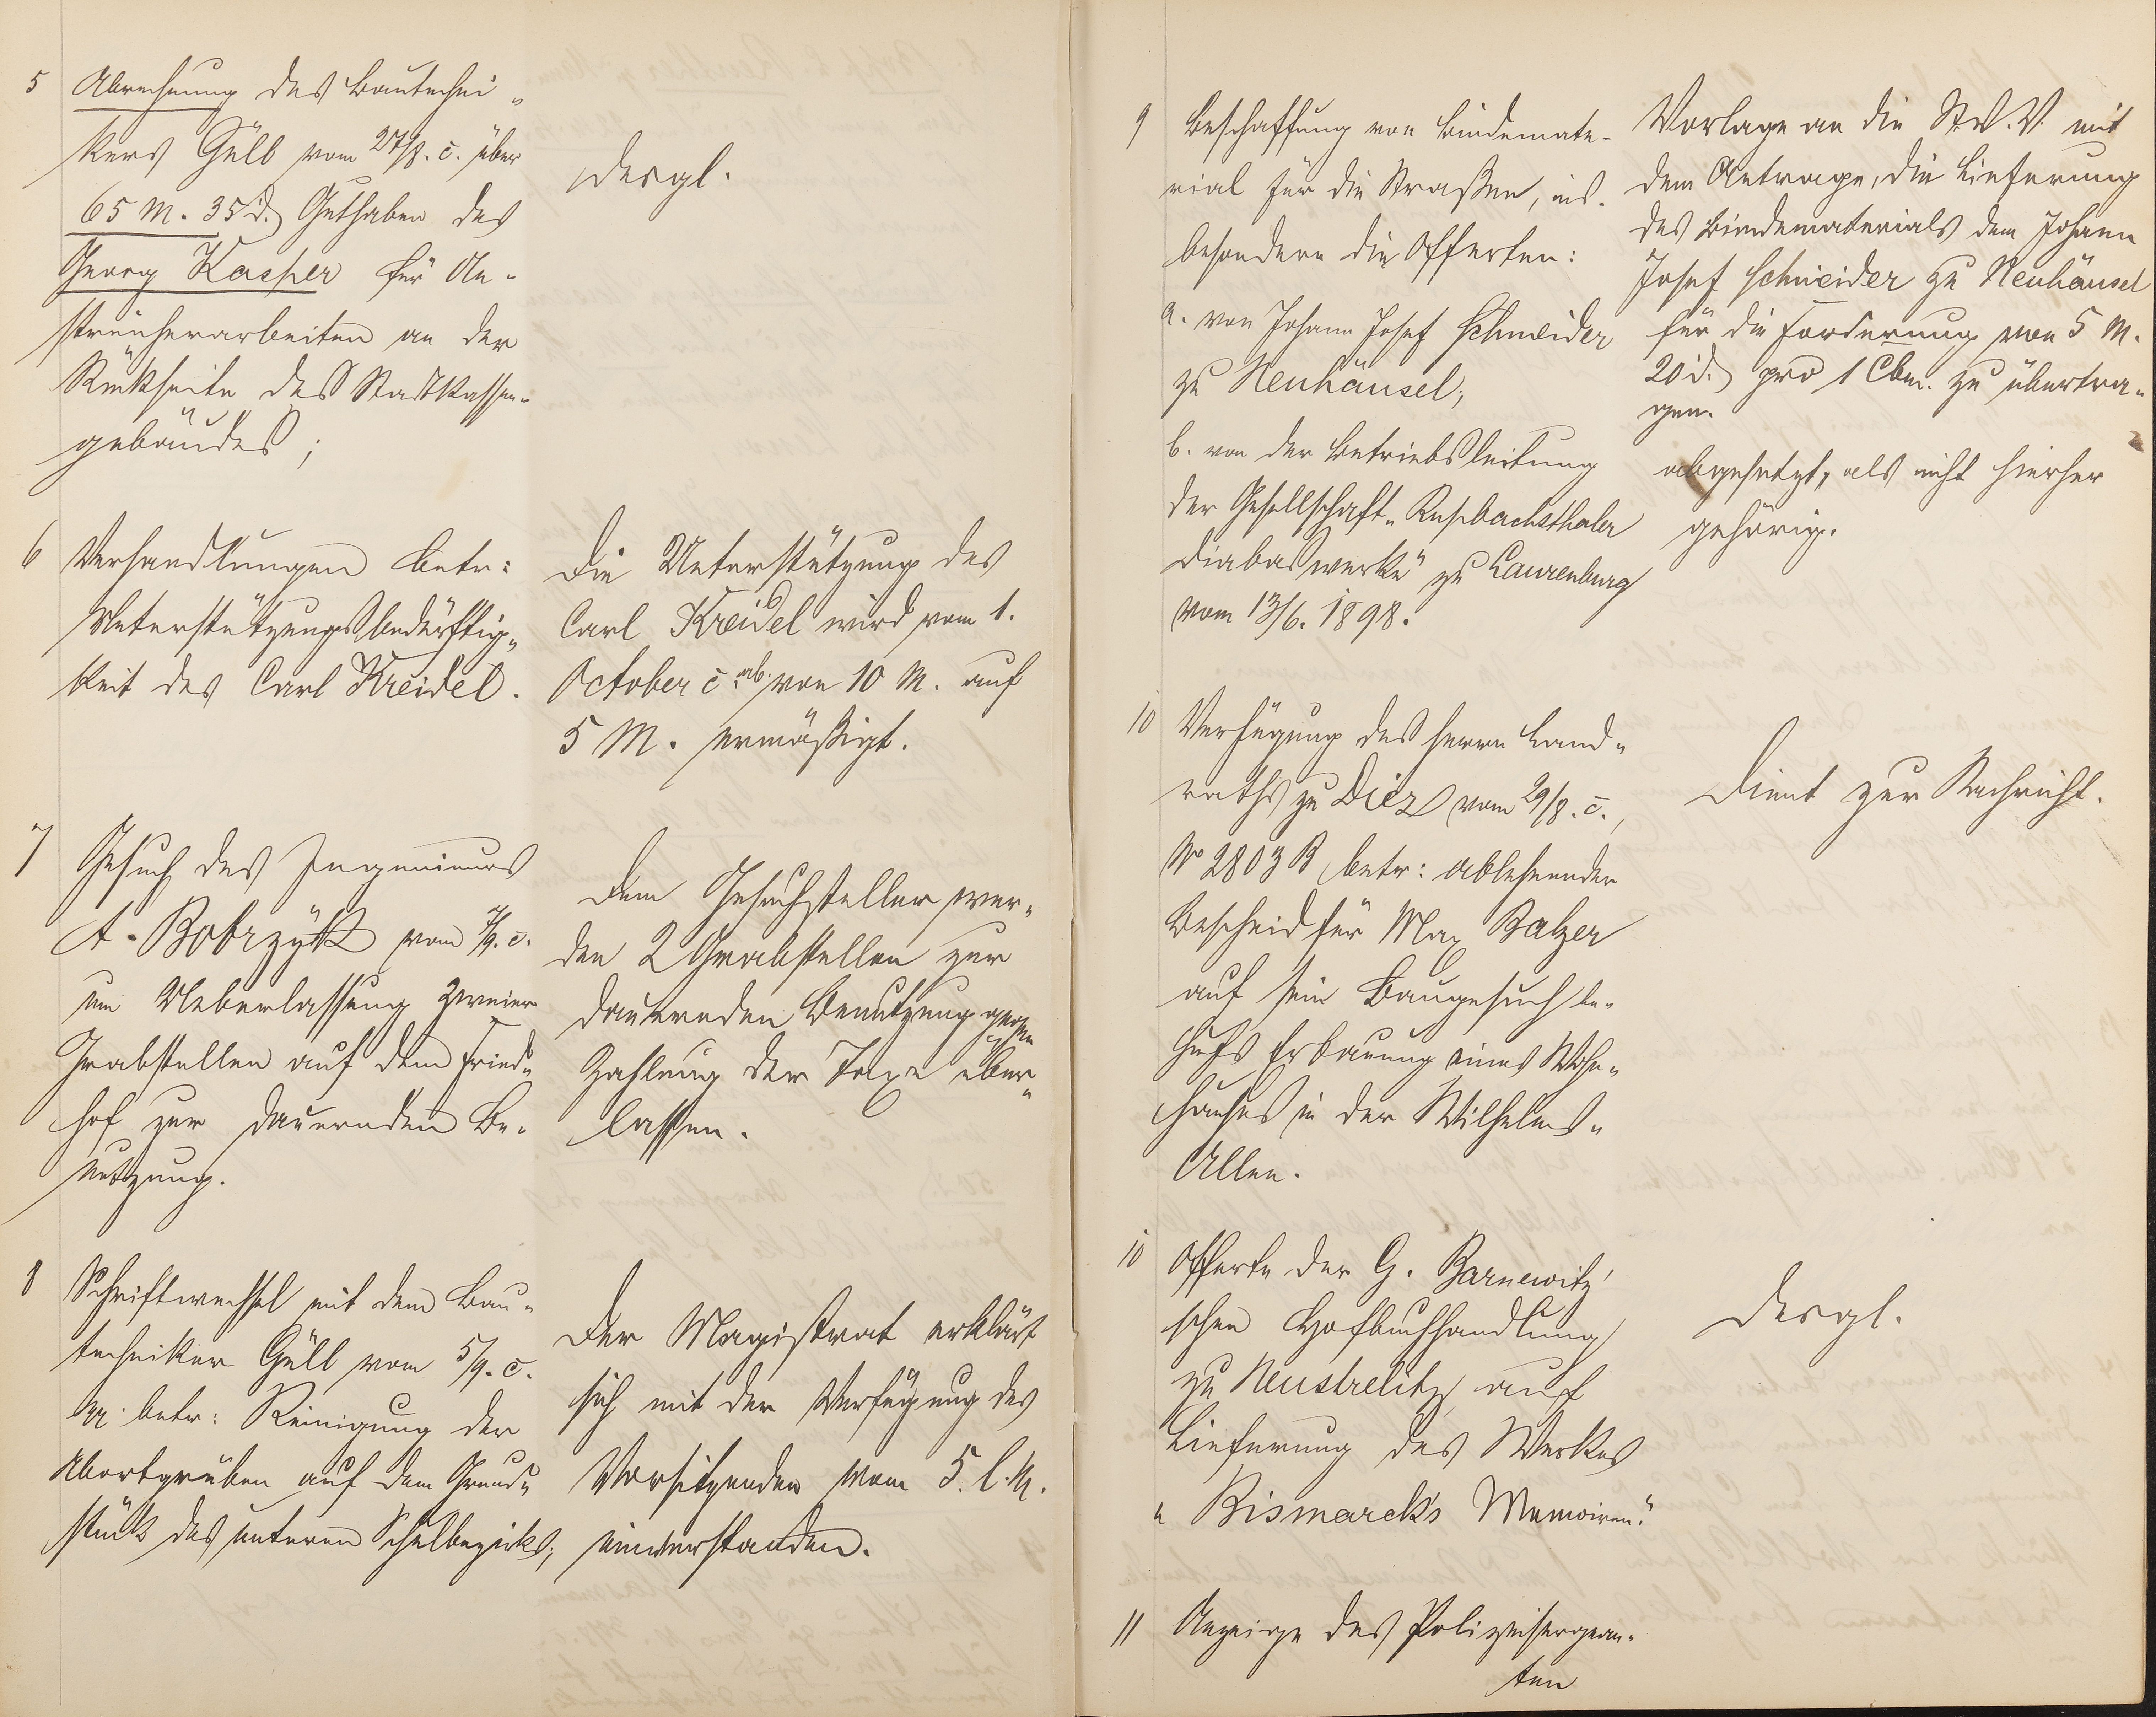 5 Abrechnung des Bautechni-
kers Güll vom 27/8. c. über
65 M. 35 d. Guthaben des
Georg Kasper für An-
streicherarbeiten an der
Rückseite des Stadtkassen-
gebäudes;
desgl.
6 Verhandlungen betr:
Unterstützungsbedürftig-
keit des Carl Kreidel.
Die Unterstützung des
Carl Kreidel wird vom 1.
October c. ab von 10 M. auf
5 M. ermäßigt.
7 Gesuch des Ingenieurs
A. Bobrzyk vom 7/9. c.
um Ueberlassung zweier
Grabstellen auf dem Fried-
hof zur dauernden Be-
nutzung.
Dem Gesuchsteller wer-
den 2 Grabstellen zur
dauernden Benutzung gegen
Zahlung der Taxe über-
lassen.
8 Schriftwechsel mit dem Bau-
techniker Güll vom 5/9. c.
betr: Reinigung der
Abortgruben auf dem Grund-
stück des unteren Schulbezirks;
Der Magistrat erklärt
sich mit der Verfügung des
Vorsitzenden vom 5. l. M.
einverstanden.
9 Beschaffung von Bindemate-
rial für die Straßen, ins-
besondere die Offerten:
a. von Johann Josef Schneider
zu Neuhäusel,
b. von der Betriebsleitung
der Gesellschaft „Rupbachsthaler
Diabaswerke" zu Laurenburg
vom 13/6. 1898.
Vorlage an die St. V. V. mit
dem Antrage, die Lieferung
des Bindematerials dem Johann
Josef Schneider zu Neuhäusel
für die Forderung von 5 M.
20 d. pro 1 Cbm. zu übertra-
gen.
abgesetzt, als nicht hierher
gehörig.
10 Verfügung des Herrn Land-
raths zu Diez vom 29/8. c.,
No 2803 B betr: ablehnender
Bescheid für Max Balzer
auf sein Baugesuch be-
hufs Erbauung eines Wohn-
hauses in der Wilhelms-
Allee.
Dient zur Nachricht.
10 Offerte der G. Barnewitz'
schen Hofbuchhandlung
zu Neustrelitz auf
Lieferung des Werkes
„Bismarck's Memoiren".
desgl.
11 Anzeige des Polizeisergean-
ten